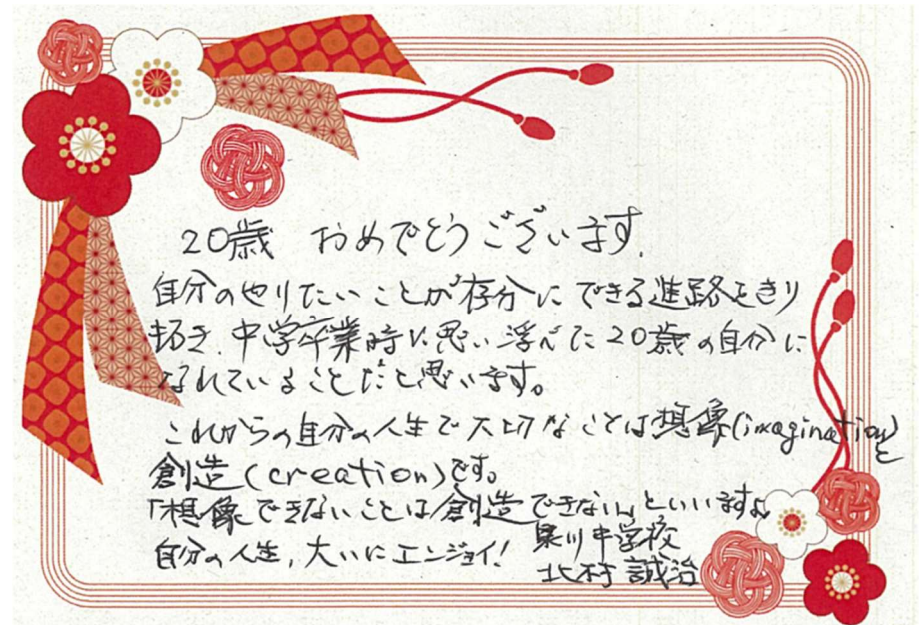 20歳 おめでとうございます.
自分のやりたいことが存分にできる進路をきり
拓き、中学卒業時に思い浮べた20歳の自分に
なれていることだと思います。
これからの自分の人生で大切なことは想像(imagination)と
創造(creation)です。
「想像できないことは創造できない」といいます。
自分の人生,大いにエンジョイ!
中学校
北村 誠治